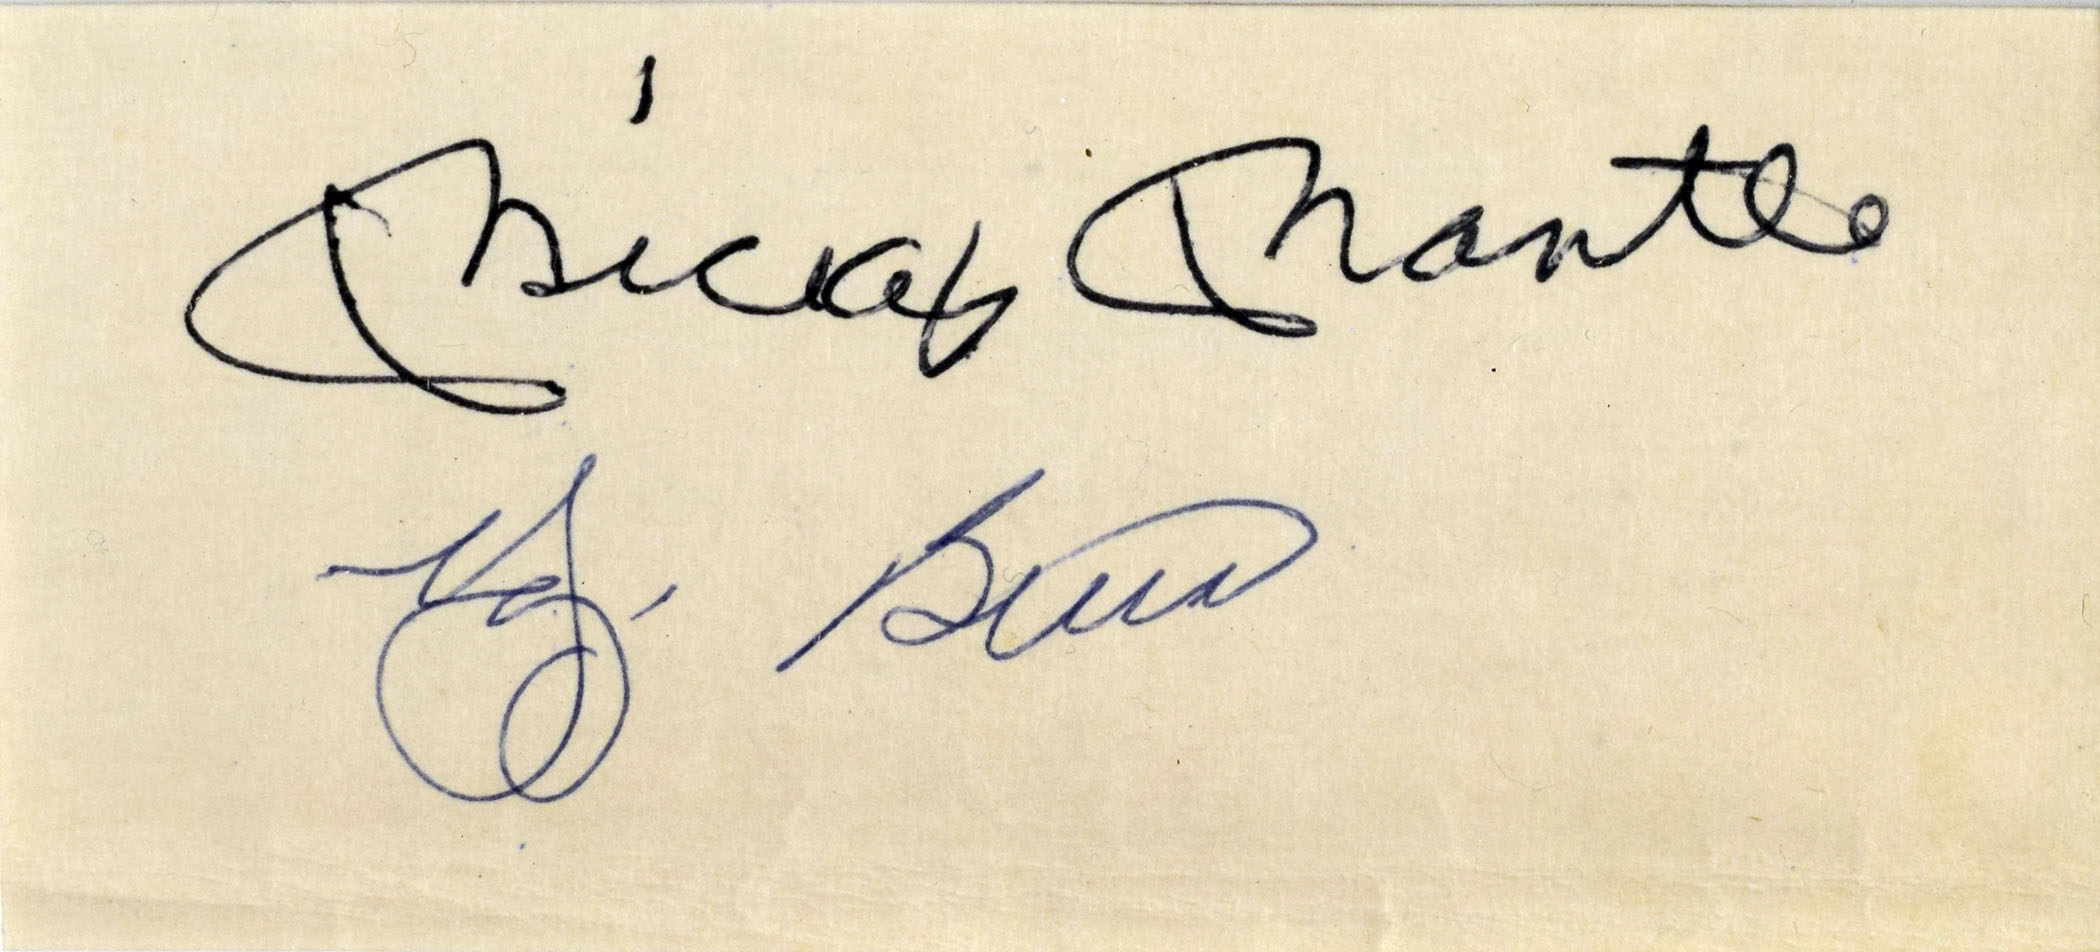 Mickey Mantle
Yogi Berra